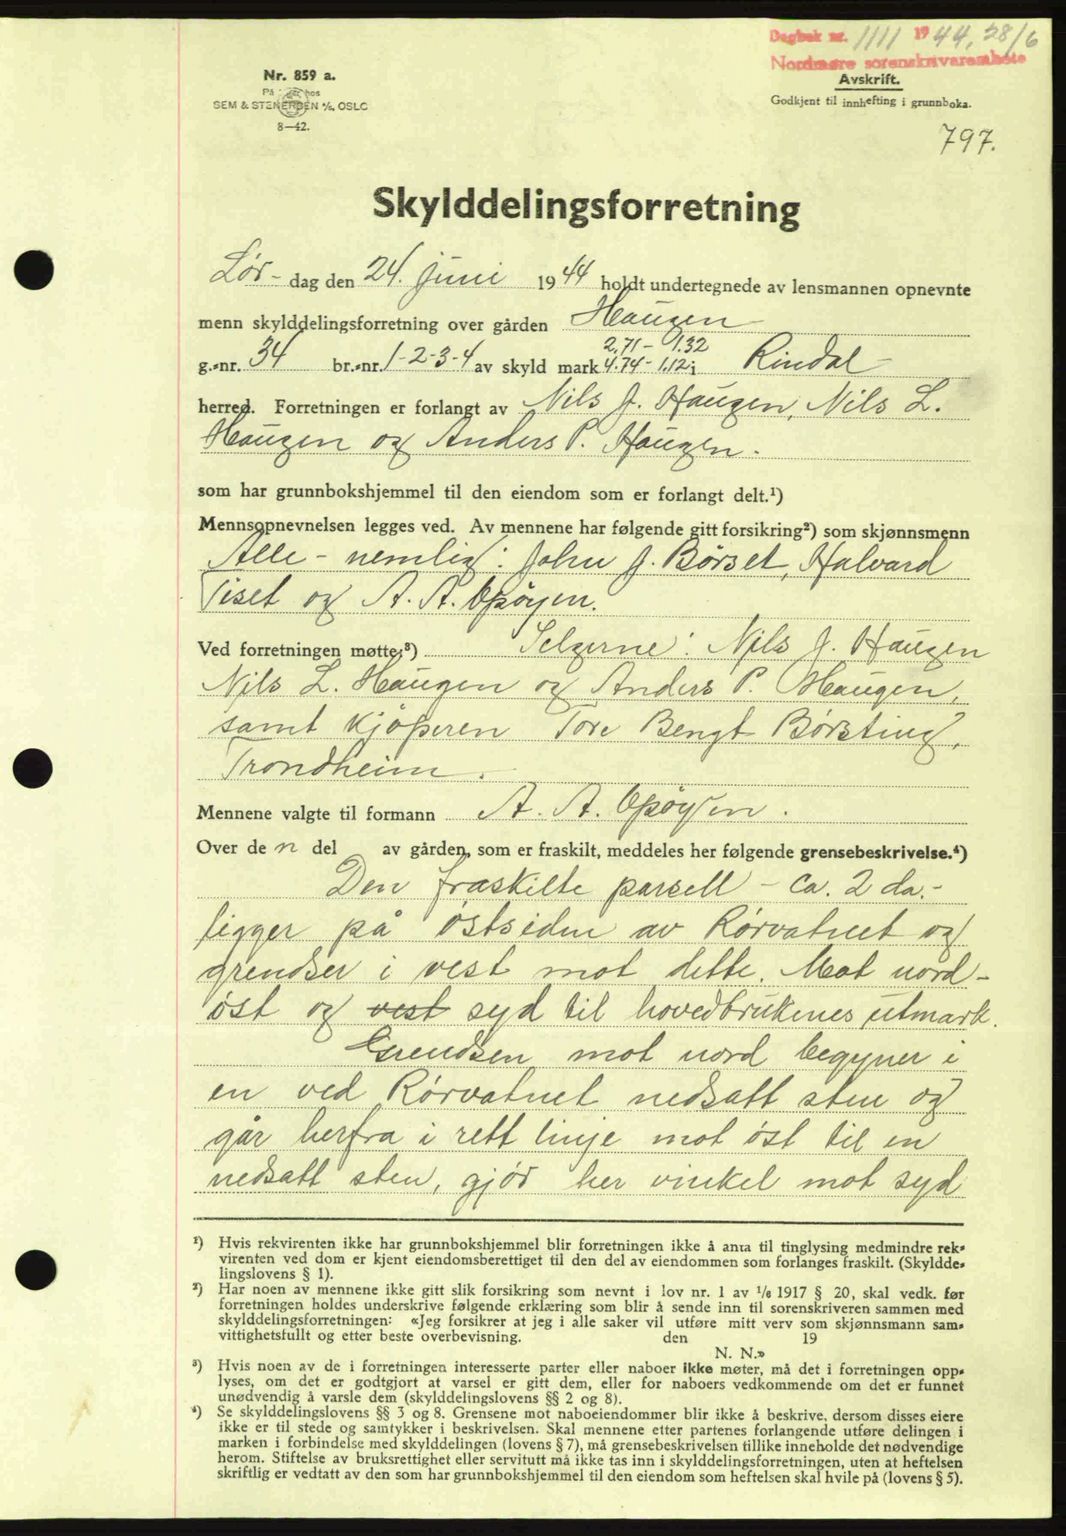 Dagbok nr. 1111 1944, 28/6
Nordmøre sorenskriverembete
Avskrift.
Godkjent til innhefting i grunnboka.
797.
Nr. 859 a.
På lager hos
SEM & STENERSEN A/S, OSLO
8—42.
Skylddelingsforretning
Lør- dag den 24. juni 1944 holdt undertegnede av lensmannen opnevnte
menn skylddelingsforretning over gården Haugen
2,71 - 1.32
g.-nr. 34 br.-nr. 1-2-3-4 av skyld mark 4.74 - 1.12 i Rindal
herred. Forretningen er forlangt av Nils J. Haugen, Nils L.
Haugen og Anders P. Haugen.
som har grunnbokshjemmel til den eiendom som er forlangt delt.¹)
Mennsopnevnelsen legges ved. Av mennene har følgende gitt forsikring²) som skjønnsmenn
Alle - nemlig: John J. Børset, Halvard
Tiset og A. A. Opøyen.
Ved forretningen møtte:³) Selgerne: Nils J. Haugen
Nils L. Haugen og Anders P. Haugen,
samt kjøperen Tore Bengt Børsting,
Trondheim.
Mennene valgte til formann A. A. Opøyen.
Over den del av gården, som er fraskilt, meddeles her følgende grensebeskrivelse.⁴)
Den fraskilte parsell - ca. 2 da. -
ligger på østsiden av Rørvatnet og
grendser i vest mot dette. Mot nord-
øst og vest syd til hovedbrukenes utmark.
Grendsen mot nord begyner i
en ved Rørvatnet nedsatt sten og
går herfra i rett linje mot øst til en
nedsatt sten, gjør her vinkel mot syd
¹) Hvis rekvirenten ikke har grunnbokshjemmel blir forretningen ikke å anta til tinglysing medmindre rek-
virenten ved dom er kjent eiendomsberettiget til den del av eiendommen som forlanges fraskilt. (Skyldde-
lingslovens § 1).
²) Har noen av mennene ikke gitt slik forsikring som nevnt i lov nr. 1 av 1/6 1917 § 20, skal vedk. før
forretningen holdes underskrive følgende erklæring som blir å sende inn til sorenskriveren sammen med
skylddelingsforretningen: «Jeg forsikrer at jeg i alle saker vil utføre mitt verv som skjønnsmann sam-
vittighetsfullt og etter beste overbevisning. den 19
N. N.»
³) Hvis noen av de i forretningen interesserte parter eller naboer ikke møter, må det i forretningen opp-
lyses, om det er godtgjort at varsel er gitt dem, eller for naboers vedkommende om det er funnet
unødvendig å varsle dem (skylddelingslovens §§ 2 og 8).
⁴) Se skylddelingslovens §§ 3 og 8. Grensene mot naboeiendommer blir ikke å beskrive, dersom disses eiere
ikke er til stede og samtykker i beskrivelsen. Skal mennene etter partenes forlangende utføre delingen i
marken i forbindelse med skylddelingen (lovens § 7), må grensebeskrivelsen tillike inneholde det nødvendige
herom. Stiftelse av bruksrettighet eller servitutt må ikke tas inn i skylddelingsforretningen, uten at heftelsen
skriftlig er vedtatt av den som har grunnbokshjemmel til den eiendom som heftelsen skal hvile på (lovens § 5).